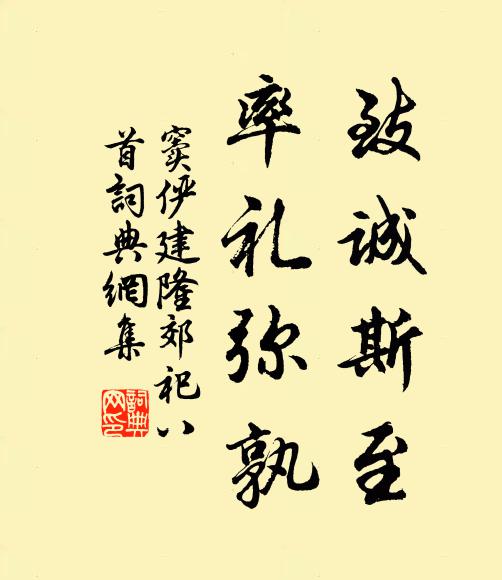 致诚斯至
率礼弥孰
窦俨建隆郊祀八
首詞典網集
詞典
网印